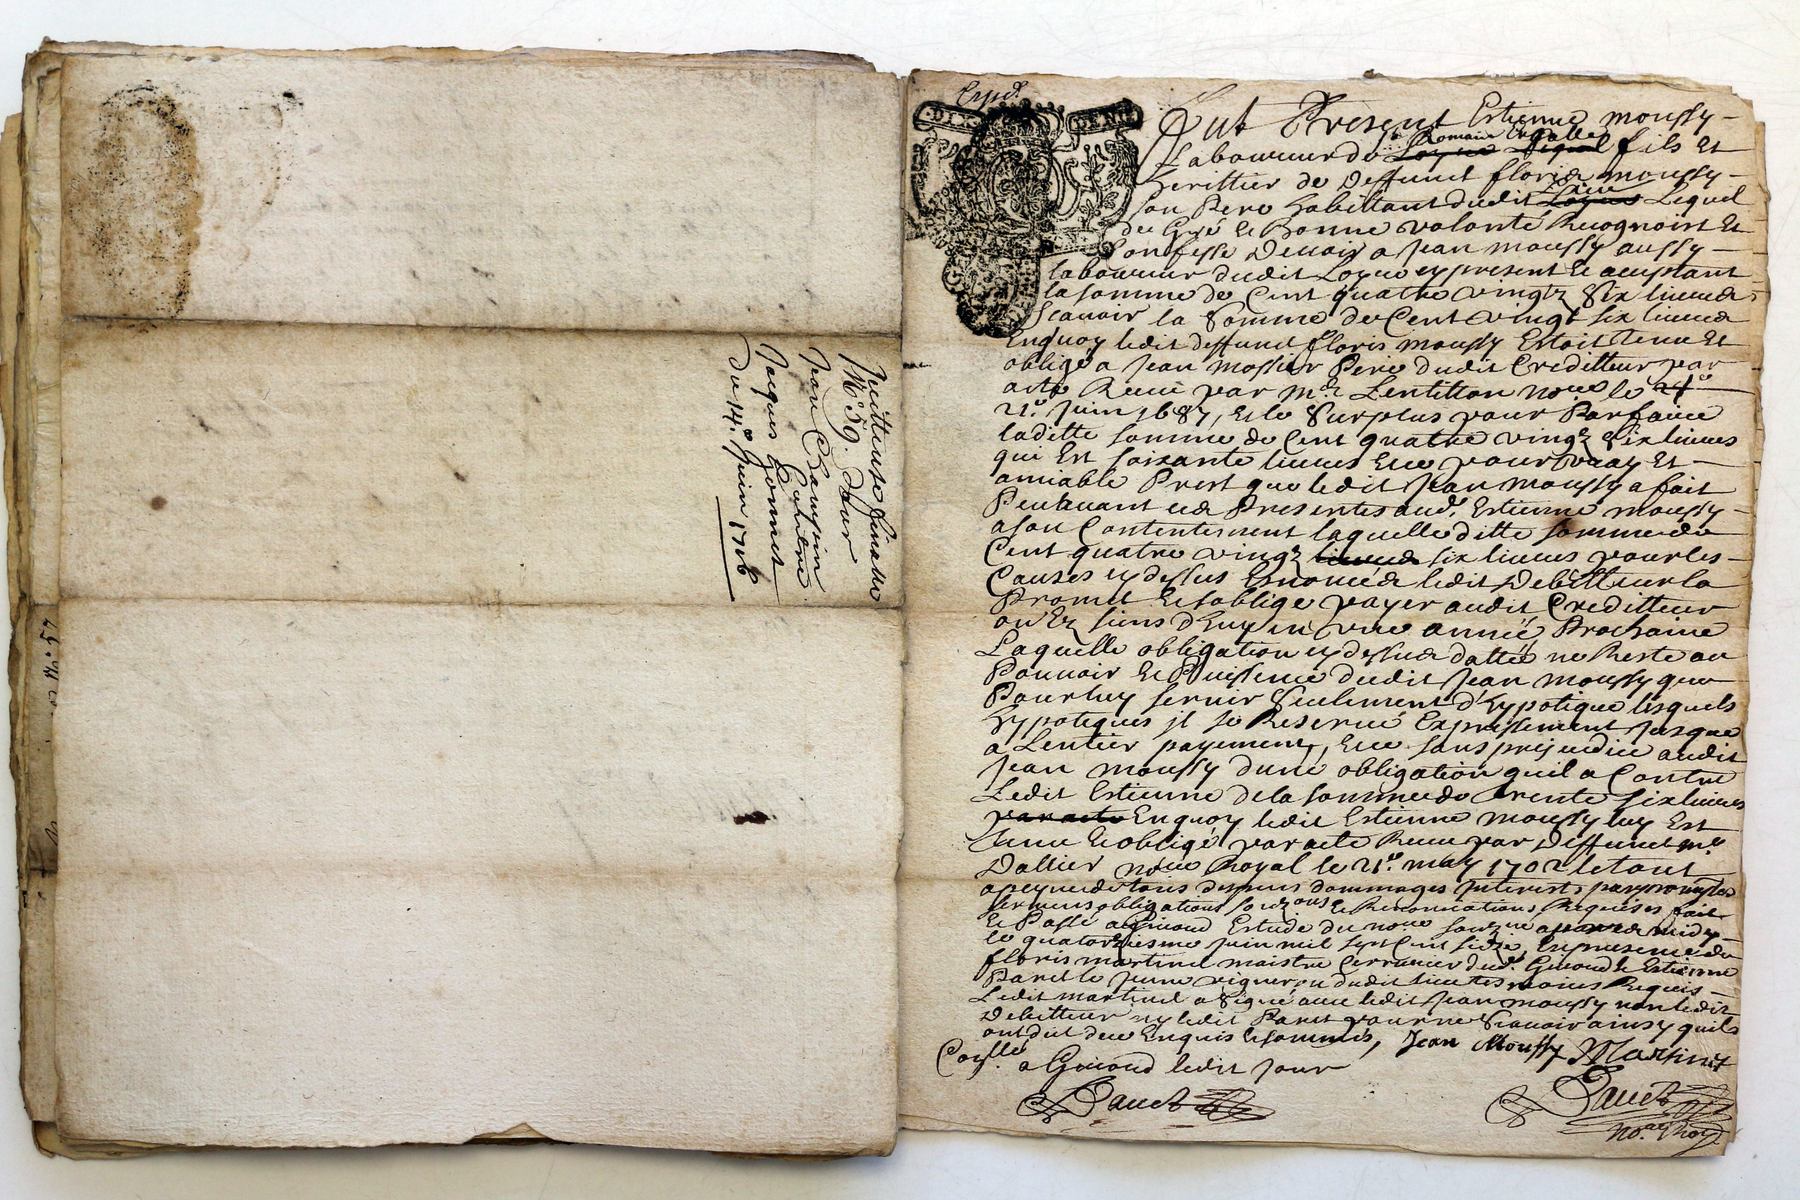 Quittance finalle
N.o 59. pour
Jean Champin
Contre
Jacques Gonnet
Du 14.e Juin 1716
Exped.
DIX DENI
Fut Present Estienne moussy
Laboureur de Romain fils Et
heritier de Deffunct floris moussy
son Pere habittant dudit lieu Lequel
de Gré Et Bonne volonté Recognoist Et
Confesse Devoir a Jean moussy aussy
laboureur dudit Loyue cy present Et aceptant
la somme de Cent quatre vingtz Six livres
scavoir la Somme de Cent vingt six livres
Enquoy ledit deffunct floris moussy Estoit tenu Et
obligé a Jean Pere dudit Creditteur par
acte Receu par m.e Lentillon no.re le
21.e Juin 1687, Et le Surplus pour Parfaire
laditte somme de Cent quatre vingtz Six livres
qui Est soixante livres Est pour vray Et
amiable Prest que ledit Jean moussy a fait
Peublement ces Presentes aud. Estienne moussy
a son Contentement laquelle ditte somme de
Cent quatre vingtz livres six livres pour les
Causes cy dessus Enoncées ledit Debitteur la
Promet Et soblige payer audit Creditteur
ou Ez siens d'huy en une année Prochaine
Laquelle obligation cy dessus dattée ne Reste au
Pouvoir Et Puissence dudit Jean moussy que
Pour luy servir Seulement d'hypotique lesquels
hypotiques il se Reserve Expressement Jusque
a Lentier payement, Et sans prejudice audit
Jean moussy dune obligation quil a Contre
Ledit Estienne de la somme de trente six livres
par acte Enquoy ledit Estienne moussy luy Est
tenu Et obligé par acte Receu par Deffunct m.e
Dallier no.re Royal le 21.e may 1702 le tout
a peyne de tous despens dommages Interests par promesses
sermens obligations soubz Et Renonciations Requises fait
Et Passé a Givord Estude du no.re soubz.né apres midy
le quatorziesme Juin mil sept Cent seize, En presence de
floris martinet maistre serrurier dud. Givord Et Estienne
Paret le Jeune vigneron dudit lieu tesmoins Requis
Ledit martinet a Signé avec ledit Jean moussy non ledit
debitteur ny ledit Paret pour ne Scavoir ainsy quils
ont dit de ce Enquis Et sommés, Jean Moussy Martinet
Con.llé a Givord ledit jour
no.re Roy.